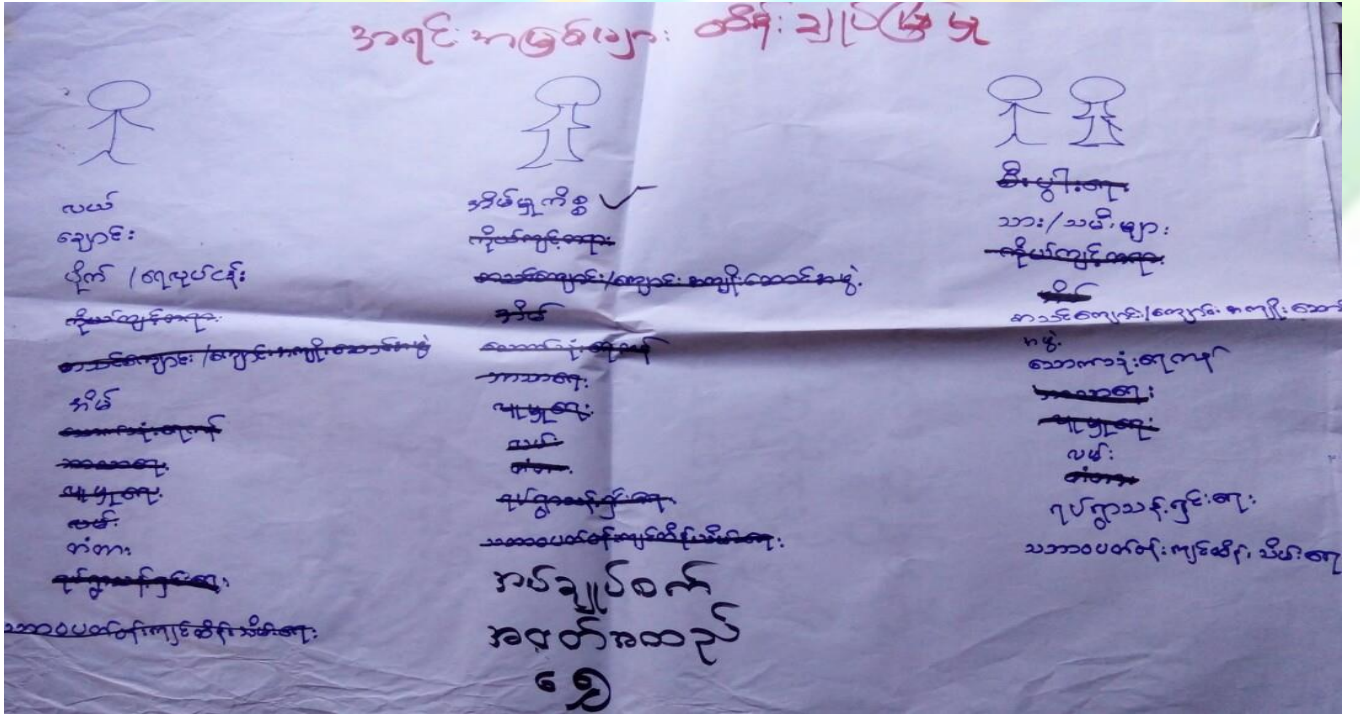 အရင်းအမြစ်များ ထိန်းချုပ်မှု
လယ်
ချောင်း
ပိုက် /ရေလုပ်ငန်း
ကိုယ်ကျင့်တရား
စာသင်ကျောင်း /ကျောင်းအကျိုးဆောင်အဖွဲ့
အိမ်
သောက်သုံးရေကန်
ဘာသာရေး
လူမှုရေး
လမ်း
တံတား
ရပ်ရွာသန့်ရှင်းရေး
သဘာဝပတ်ဝန်းကျင်ထိန်းသိမ်းရေး
အိမ်မှုကိစ္စ ✓
ကိုယ်ကျင့်တရား
စာသင်ကျောင်း/ကျောင်းအကျိုးဆောင်အဖွဲ့
အိမ်
သောက်သုံးရေကန်
ဘာသာရေး
လူမှုရေး
လမ်း
တံတား
ရပ်ရွာသန့်ရှင်းရေး
သဘာဝပတ်ဝန်းကျင်ထိန်းသိမ်းရေး
အပ်ချုပ်စက်
အဝတ်အထည်
ရွှေ
စီးပွါးရေး
သား/သမီးများ
ကိုယ်ကျင့်တရား
အိမ်
စာသင်ကျောင်း/ကျောင်းအကျိုးဆောင်
အဖွဲ့
သောက်သုံးရေကန်
ဘာသာရေး
လူမှုရေး
လမ်း
တံတား
ရပ်ရွာသန့်ရှင်းရေး
သဘာဝပတ်ဝန်းကျင်ထိန်းသိမ်းရေး